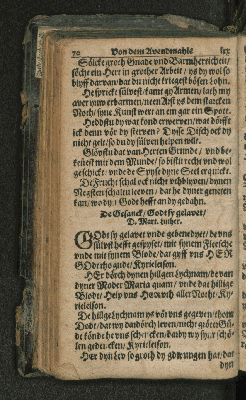 70 Von dem Avendmahle lxx
Sölcke groth Gnade vnd Barmherticheit/
söcke ein Herr in grother Arbeit/ ys dy wol so
blyff darvan/ dat du nicht kriegest bösen Lohn.
He sprickt sülvest/ kamt gy Armen/ lath my
aver yuw erbarmen/ neen Arst ys dem starcken
Noth/ syne Kunst wert an em gar ein Spott.
Heddstu dy wat kond erwerven/ wat dörfft
ick denn vör dy sterven? Dysse Disch ock dy
nicht gelt/ so du dy sülven helpen wilt.
Glövstu dat van Herten Grunde/ vnd be-
kennest mit dem Munde/ so bistu recht vnd wol
geschicket/ vnde de Spyse dyne Seel erquickt.
De Frucht schal ock nicht vthblyven/ dynen
Negsten schaltu leeven/ dat he dyner geneten
kan/ wo dy Godt hefft an dy gedahn.
De Gesanck/ Godt sy gelavet/
D. Mart. Luther.
GOdt sy gelavet vnde gebenedyet/ de vns
sülvest hefft gespyset/ mit synem Flesche
vnde mit synem Blode/ dat gyff vns HER
GOdt tho gude/ Kyrieleison.
HEr dörch dynen hilgen Lychnam/ de van
dyner Moder Maria quam/ vnde dat hillige
Blodt/ Help vns Her vth aller Noth/ Ky-
rieleison.
De hillge Lychnam ys vör vns gegeven/ thom
Dode/ dat wy dardörch leven/ nicht gröter Gü-
de konde he vns schencken/ darby wy syner schö-
len gedencken/ Kyrieleison.
Her dyn Lev so groth dy gdwungen hat/ dat
dyn